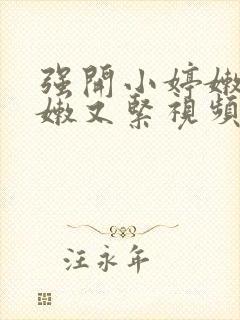 强開小婷嫩
嫩又緊視頻
汪永年